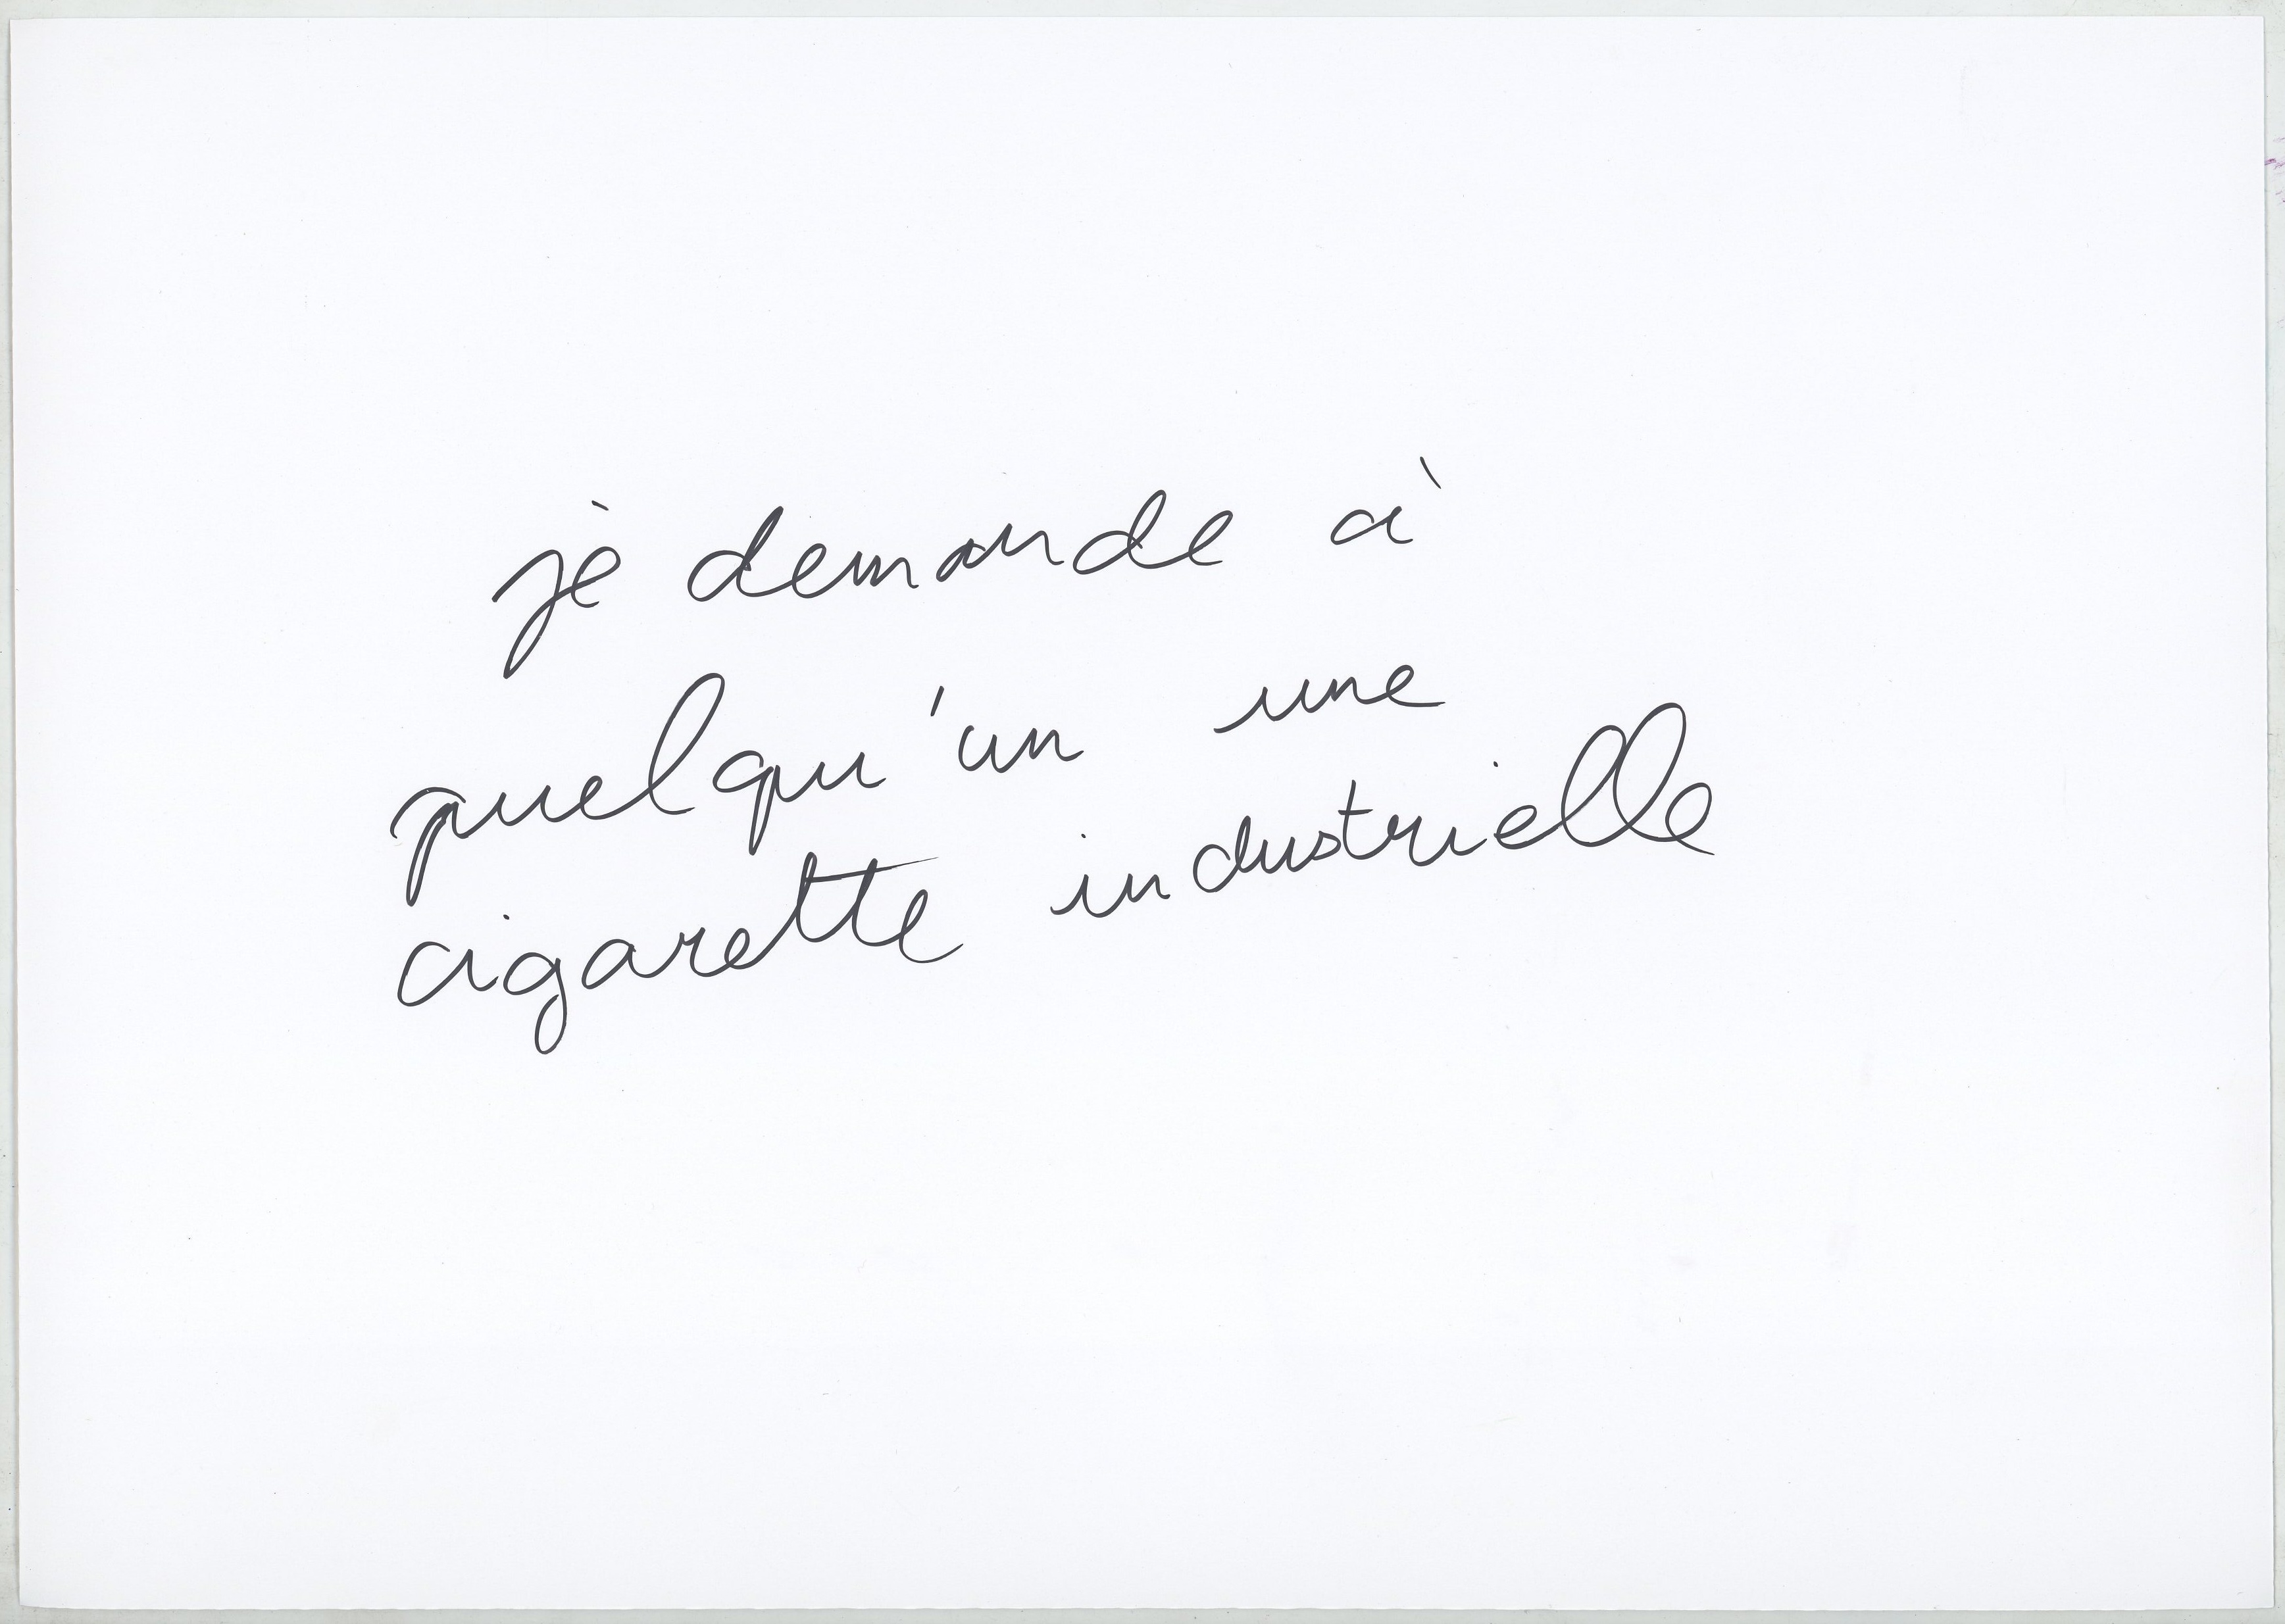 je demande à
quelqu'un une
cigarette industrielle